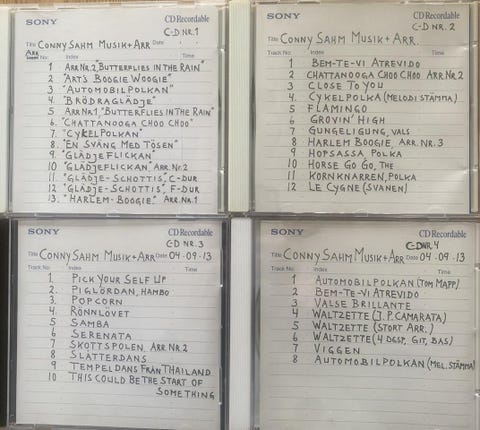 SONY
CD Recordable
C-D NR.1
Title CONNY SAHM MUSIK+ARR Date
Track No. Index Time
1 ARR.NR.2, "BUTTERFLIES IN THE RAIN"
2 "ART'S BOOGIE WOOGIE"
3 "AUTOMOBILPOLKAN"
4 "BRÖDRAGLÄDJE"
5 ARR.NR.1, "BUTTERFLIES IN THE RAIN"
6 "CHATTANOOGA CHOO CHOO"
7 "CYKELPOLKAN"
8 "EN SVÄNG MED TÖSEN"
9 "GLÄDJEFLICKAN"
10 "GLÄDJEFLICKAN", ARR.NR.2
11 "GLÄDJE-SCHOTTIS", C-DUR
12 "GLÄDJE-SCHOTTIS", F-DUR
13. "HARLEM-BOOGIE", ARR.NR.1
SONY
CD Recordable
C-D NR. 2
Title CONNY SAHM MUSIK+ARR.
Track No. Index Time
1 BEM-TE-VI ATREVIDO
2 CHATTANOOGA CHOO CHOO ARR.NR.2
3 CLOSE TO YOU
4 CYKELPOLKA (MELODI STÄMMA)
5 FLAMINGO
6 GROVIN' HIGH
7 GUNGELIGUNG, VALS
8 HARLEM BOOGIE, ARR.NR.3
9 HOPSASSA, POLKA
10 HORSE GO GO, THE
11 KORNKNARREN, POLKA
12 LE CYGNE (SVANEN)
SONY
CD Recordable
C-D NR.3
Title CONNY SAHM MUSIK+ARR Date 04-09-13
Track No. Index Time
1. PICK YOUR SELF UP
2. PIGLÖRDAN, HAMBO
3. POPCORN
4. RÖNNLÖVET
5 SAMBA
6 SERENATA
7 SKOTTSPOLEN, ARR.NR.2
8 SLÅTTERDANS
9 TEMPELDANS FRÅN THAILAND
10 THIS COULD BE THE START OF
SOMETHING
SONY
CD Recordable
C-D NR 4
Title CONNY SAHM MUSIK+ARR Date 04-09-13
Track No. Index Time
1 AUTOMOBILPOLKAN (TOM MAPP)
2 BEM-TE-VI ATREVIDO
3 VALSE BRILLANTE
4 WALTZETTE (J.P. CAMARATA)
5 WALTZETTE (STORT ARR.)
6 WALTZETTE (4 DGSP, GIT, BAS)
7 VIGGEN
8 AUTOMOBILPOLKAN (MEL. STÄMMA)